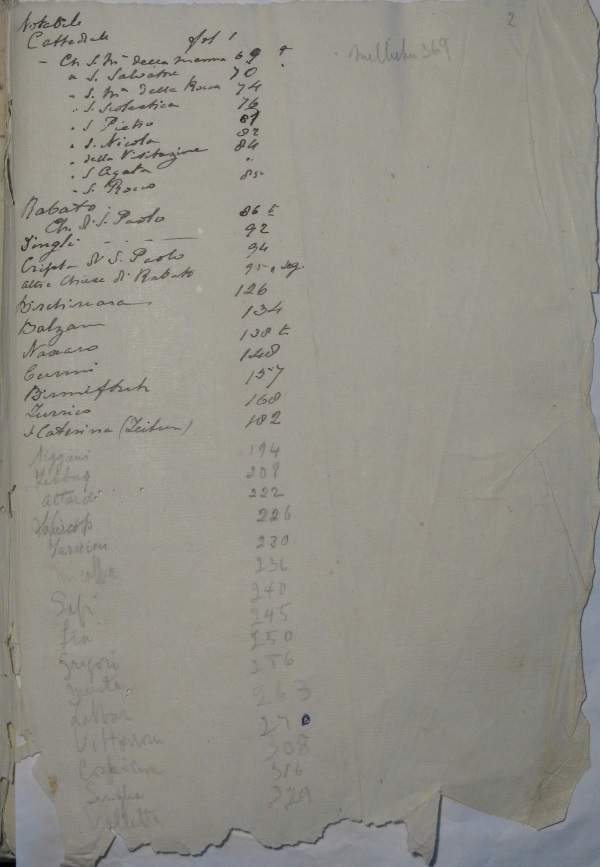 2
Notabile
Cattedrale fol 1
mellieha 369
- Ch. S. Ma della 69 t
" S. Salvatore 70
" S. Ma della Rocca 74
" S. Scolastica 76
" S. Pietro 81
" S. Nicola 82
" della Visitazione 84
" S. Agata "
" S. Rocco 85
Rabato
Ch. di S. Paolo 86 t
Dingli 92
Cripta di S. Paolo 94
altre Chiese di Rabato 95 e seg.
126
Balzan 134
Naxaro 138 t
Curmi 148
157
Zurrico 168
S Caterina (Zeitun) 182
Siggeui 194
Zebbug 208
Attard 222
226
230
236
Safi 240
Lia 245
Gregori 250
256
263
27
Vittoriosa 308
Cospicua 316
Senglea 329
Valletta